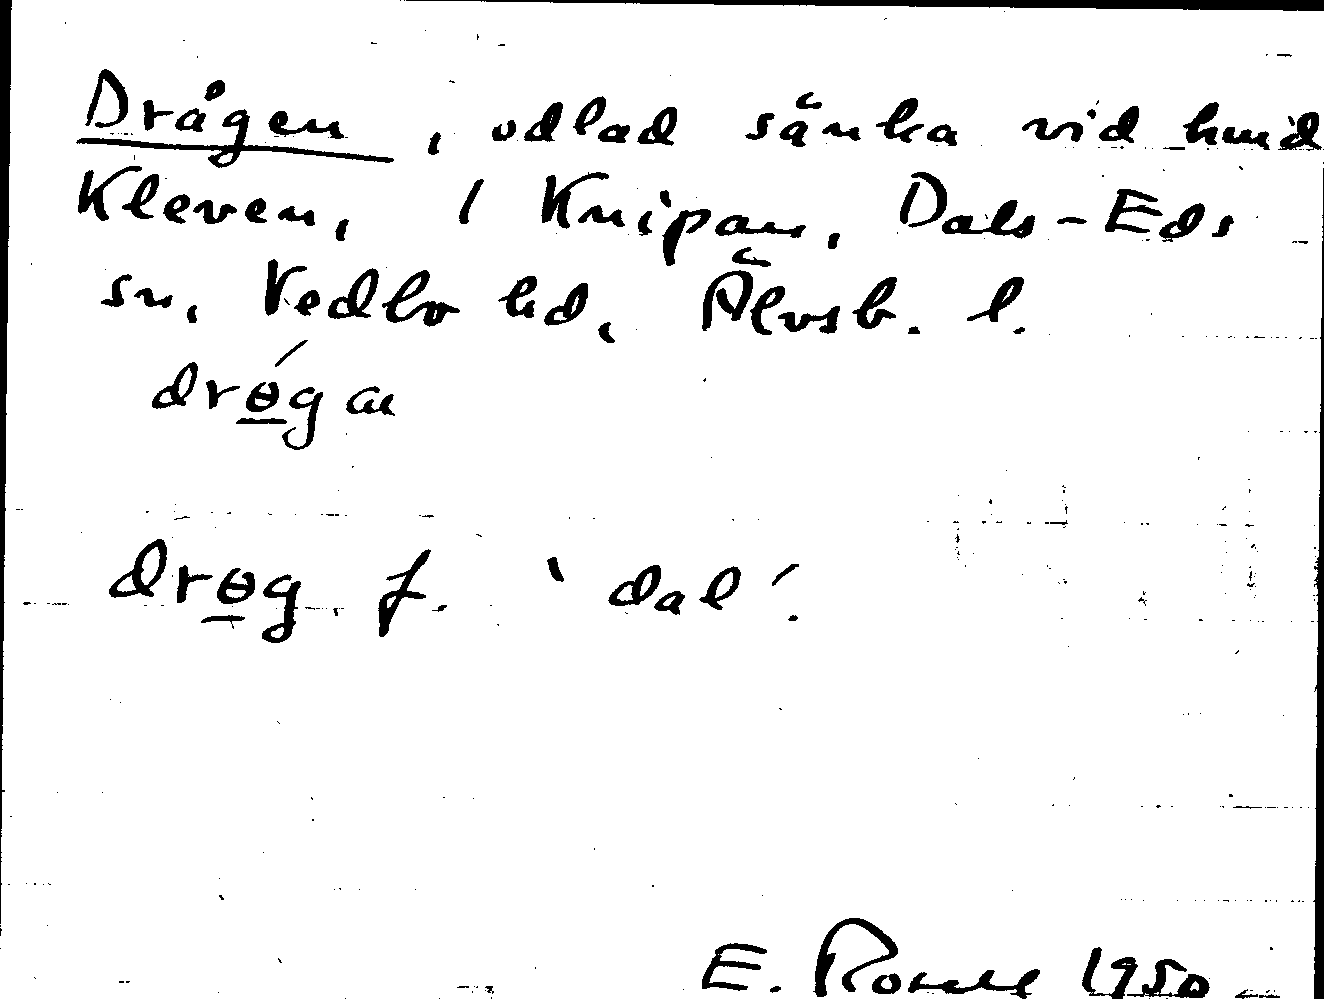 Drågen, odlad sänka vid hmd
Kleven, 1 Knipan, Dals-Eds
sn, Vedbo hd, Älvsb. l.
drɵ́gan
drɵg f. ‘dal’.
E. 1950